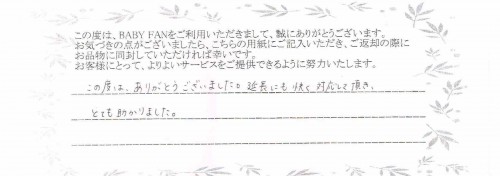 この度は、BABY FANをご利用いただきまして、誠にありがとうございます。
お気づきの点がございましたら、こちらの用紙にご記入いただき、ご返却の際に
お品物に同封していただければ幸いです。
お客様にとって、よりよいサービスをご提供できるように努力いたします。
この度は、ありがとうございました。延長にも快く対応して頂き、
とても助かりました。